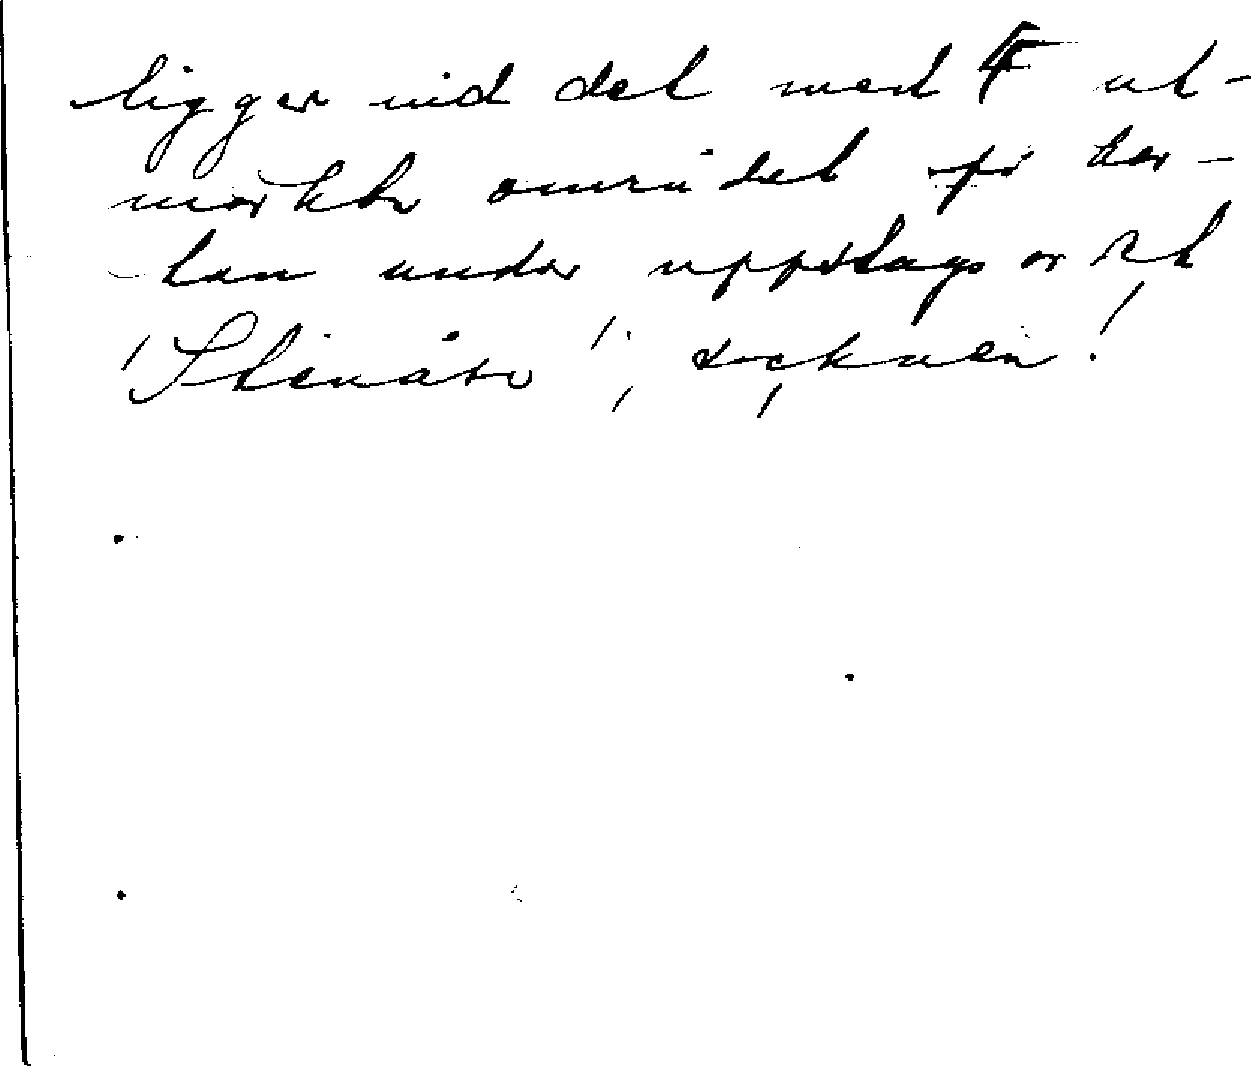 ligger vid det med F ut-
märkta området på kar-
tan under uppslagsordet
"Stenåsa", socknen!